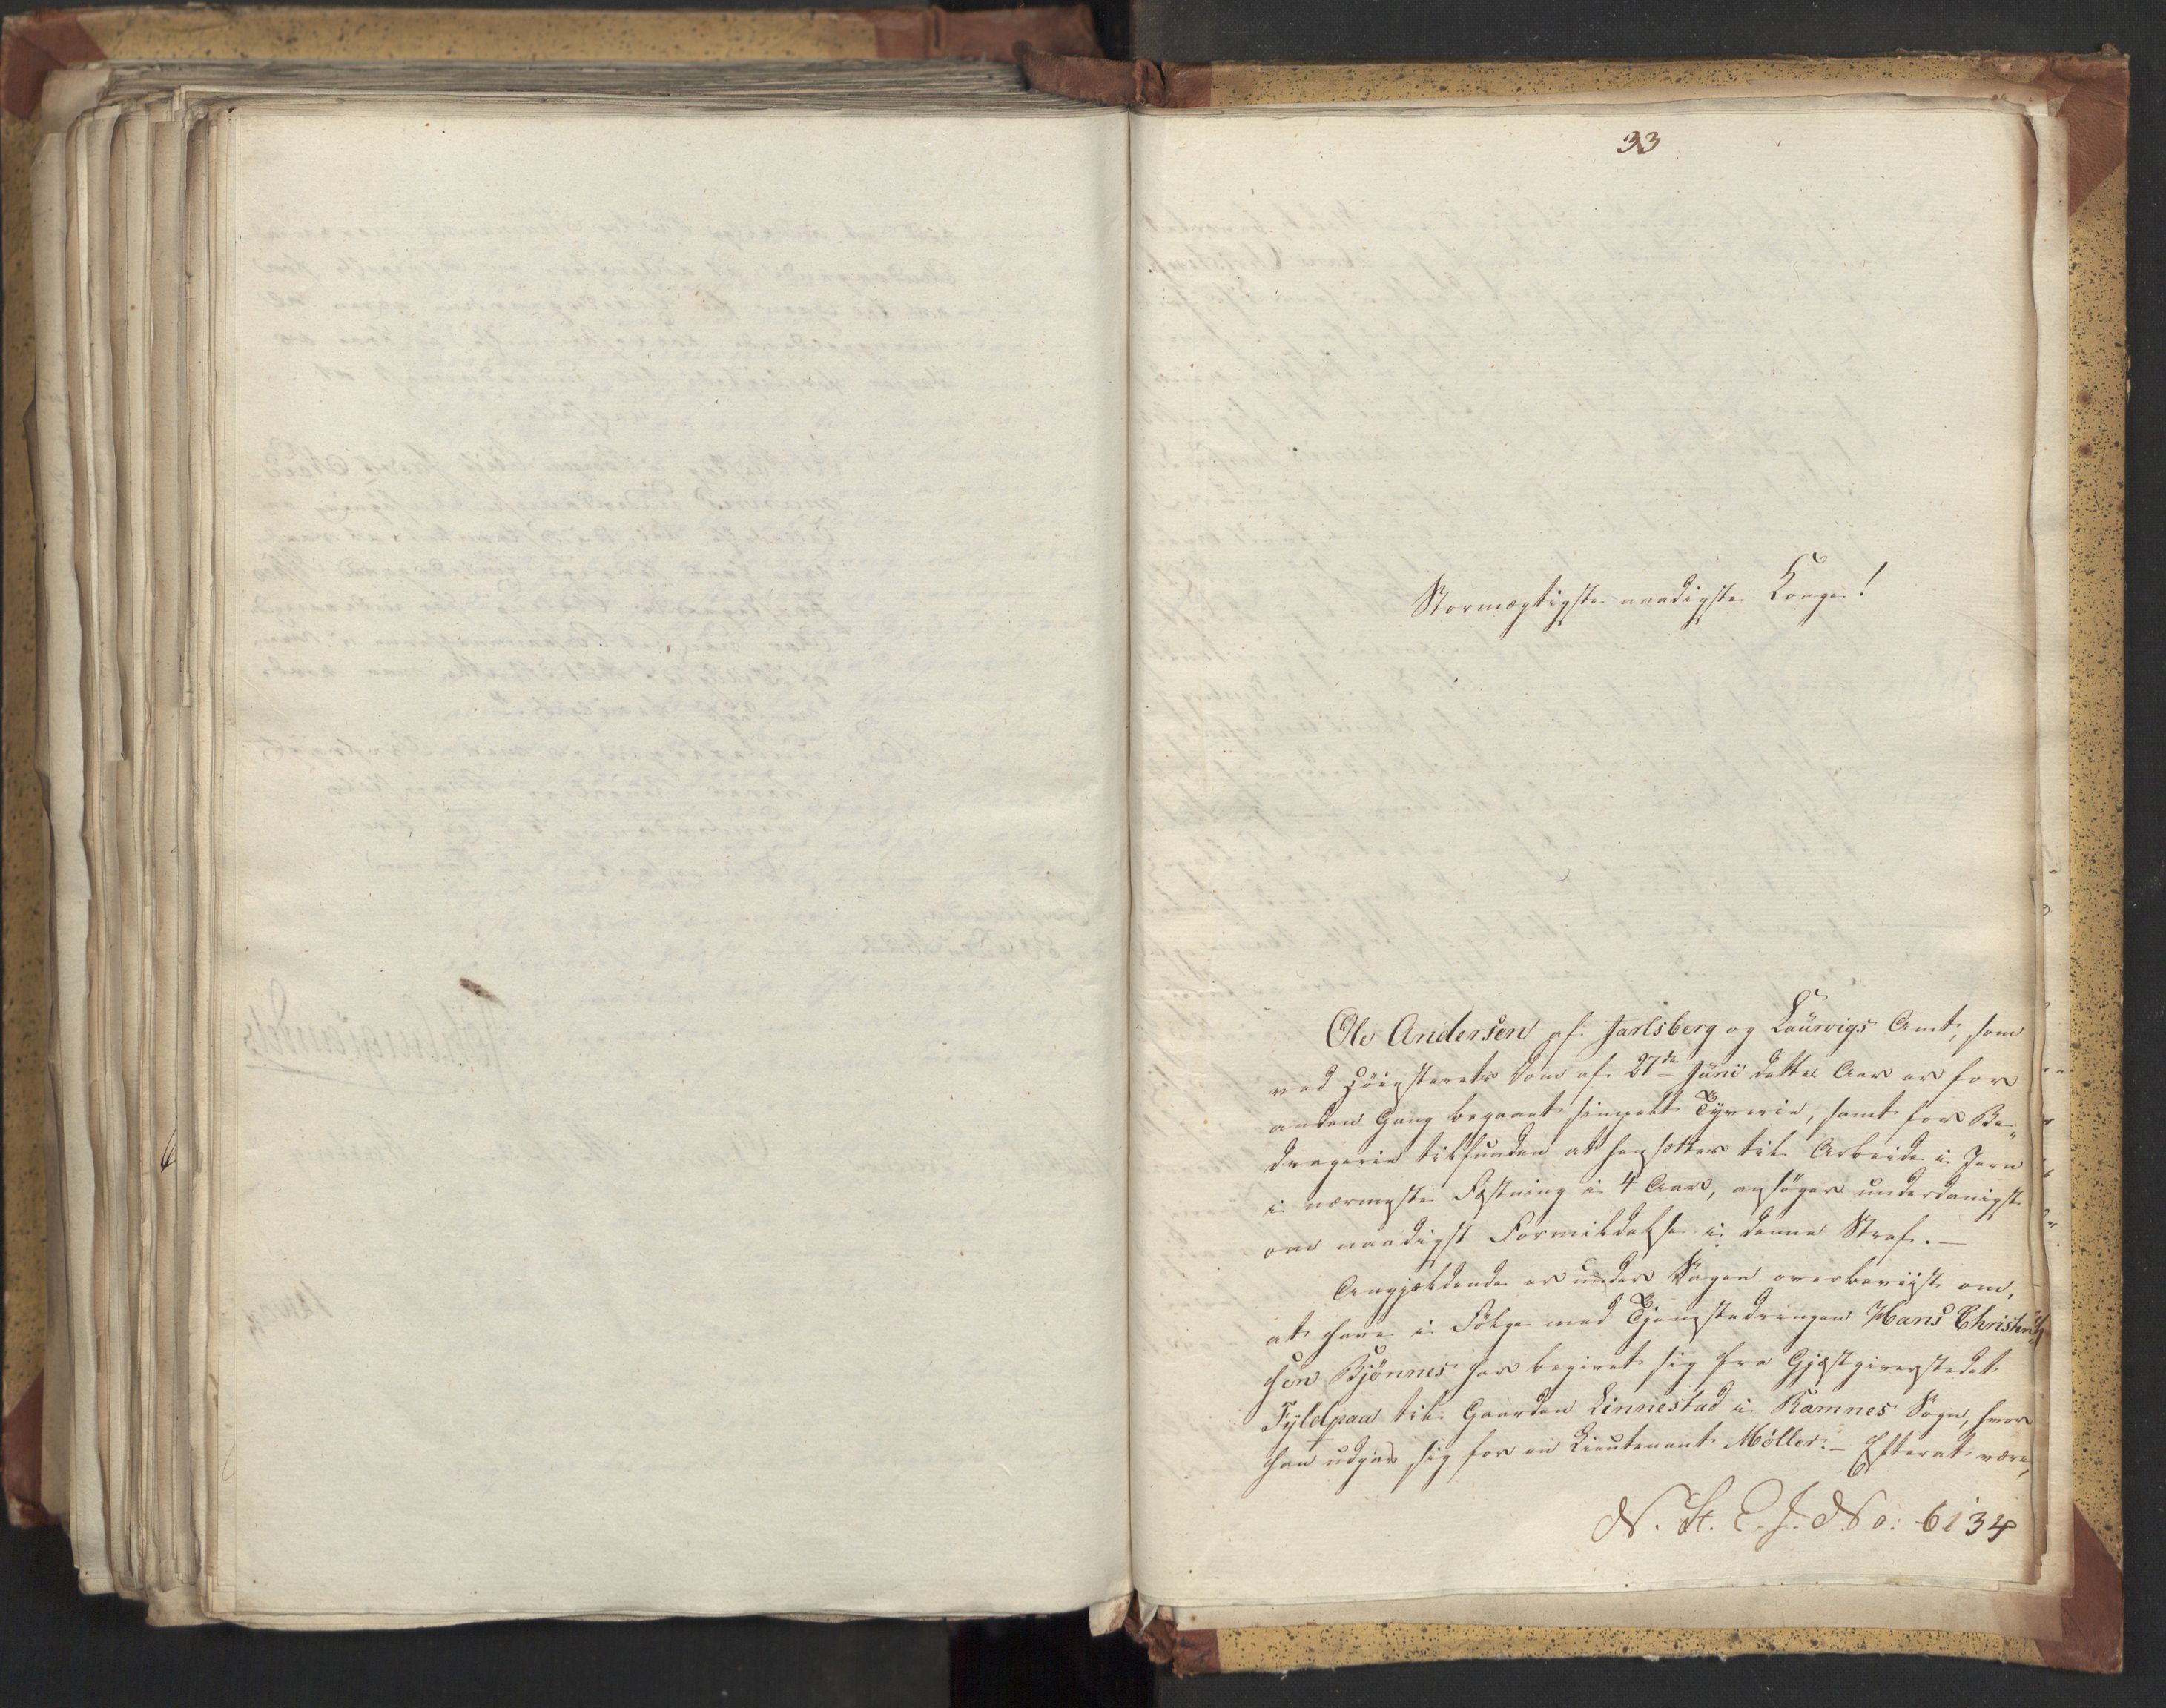 33
Stormægtigste naadigste Konge!
Ole Andersen af Jarlsberg og Laürvigs Amt, som
ved Höiesterets Dom af 27de Jüni dette Aar er for
anden Gang begaaet simpelt Tyverie, samt for Be„
dragerie tilfunden at hensættes til Arbeide i Jern
i nærmeste Fæstning i 4 Aar, ansöger underdanigst
om naadigst Formildelse i denne Straf. —
Angjældende er under Sagen overbeviist om,
at have i Fölge med Tjenestedrengen Hans Christen„
sen Bjönnes har begivet sig fra Gjestgiverstedet
Fyldpaa til Gaarden Linnestad i Ramnes Sogn, hvor
han udgav sig for en Lieutenant Möller. — Efterat være,
N. St. E. J. No: 6134